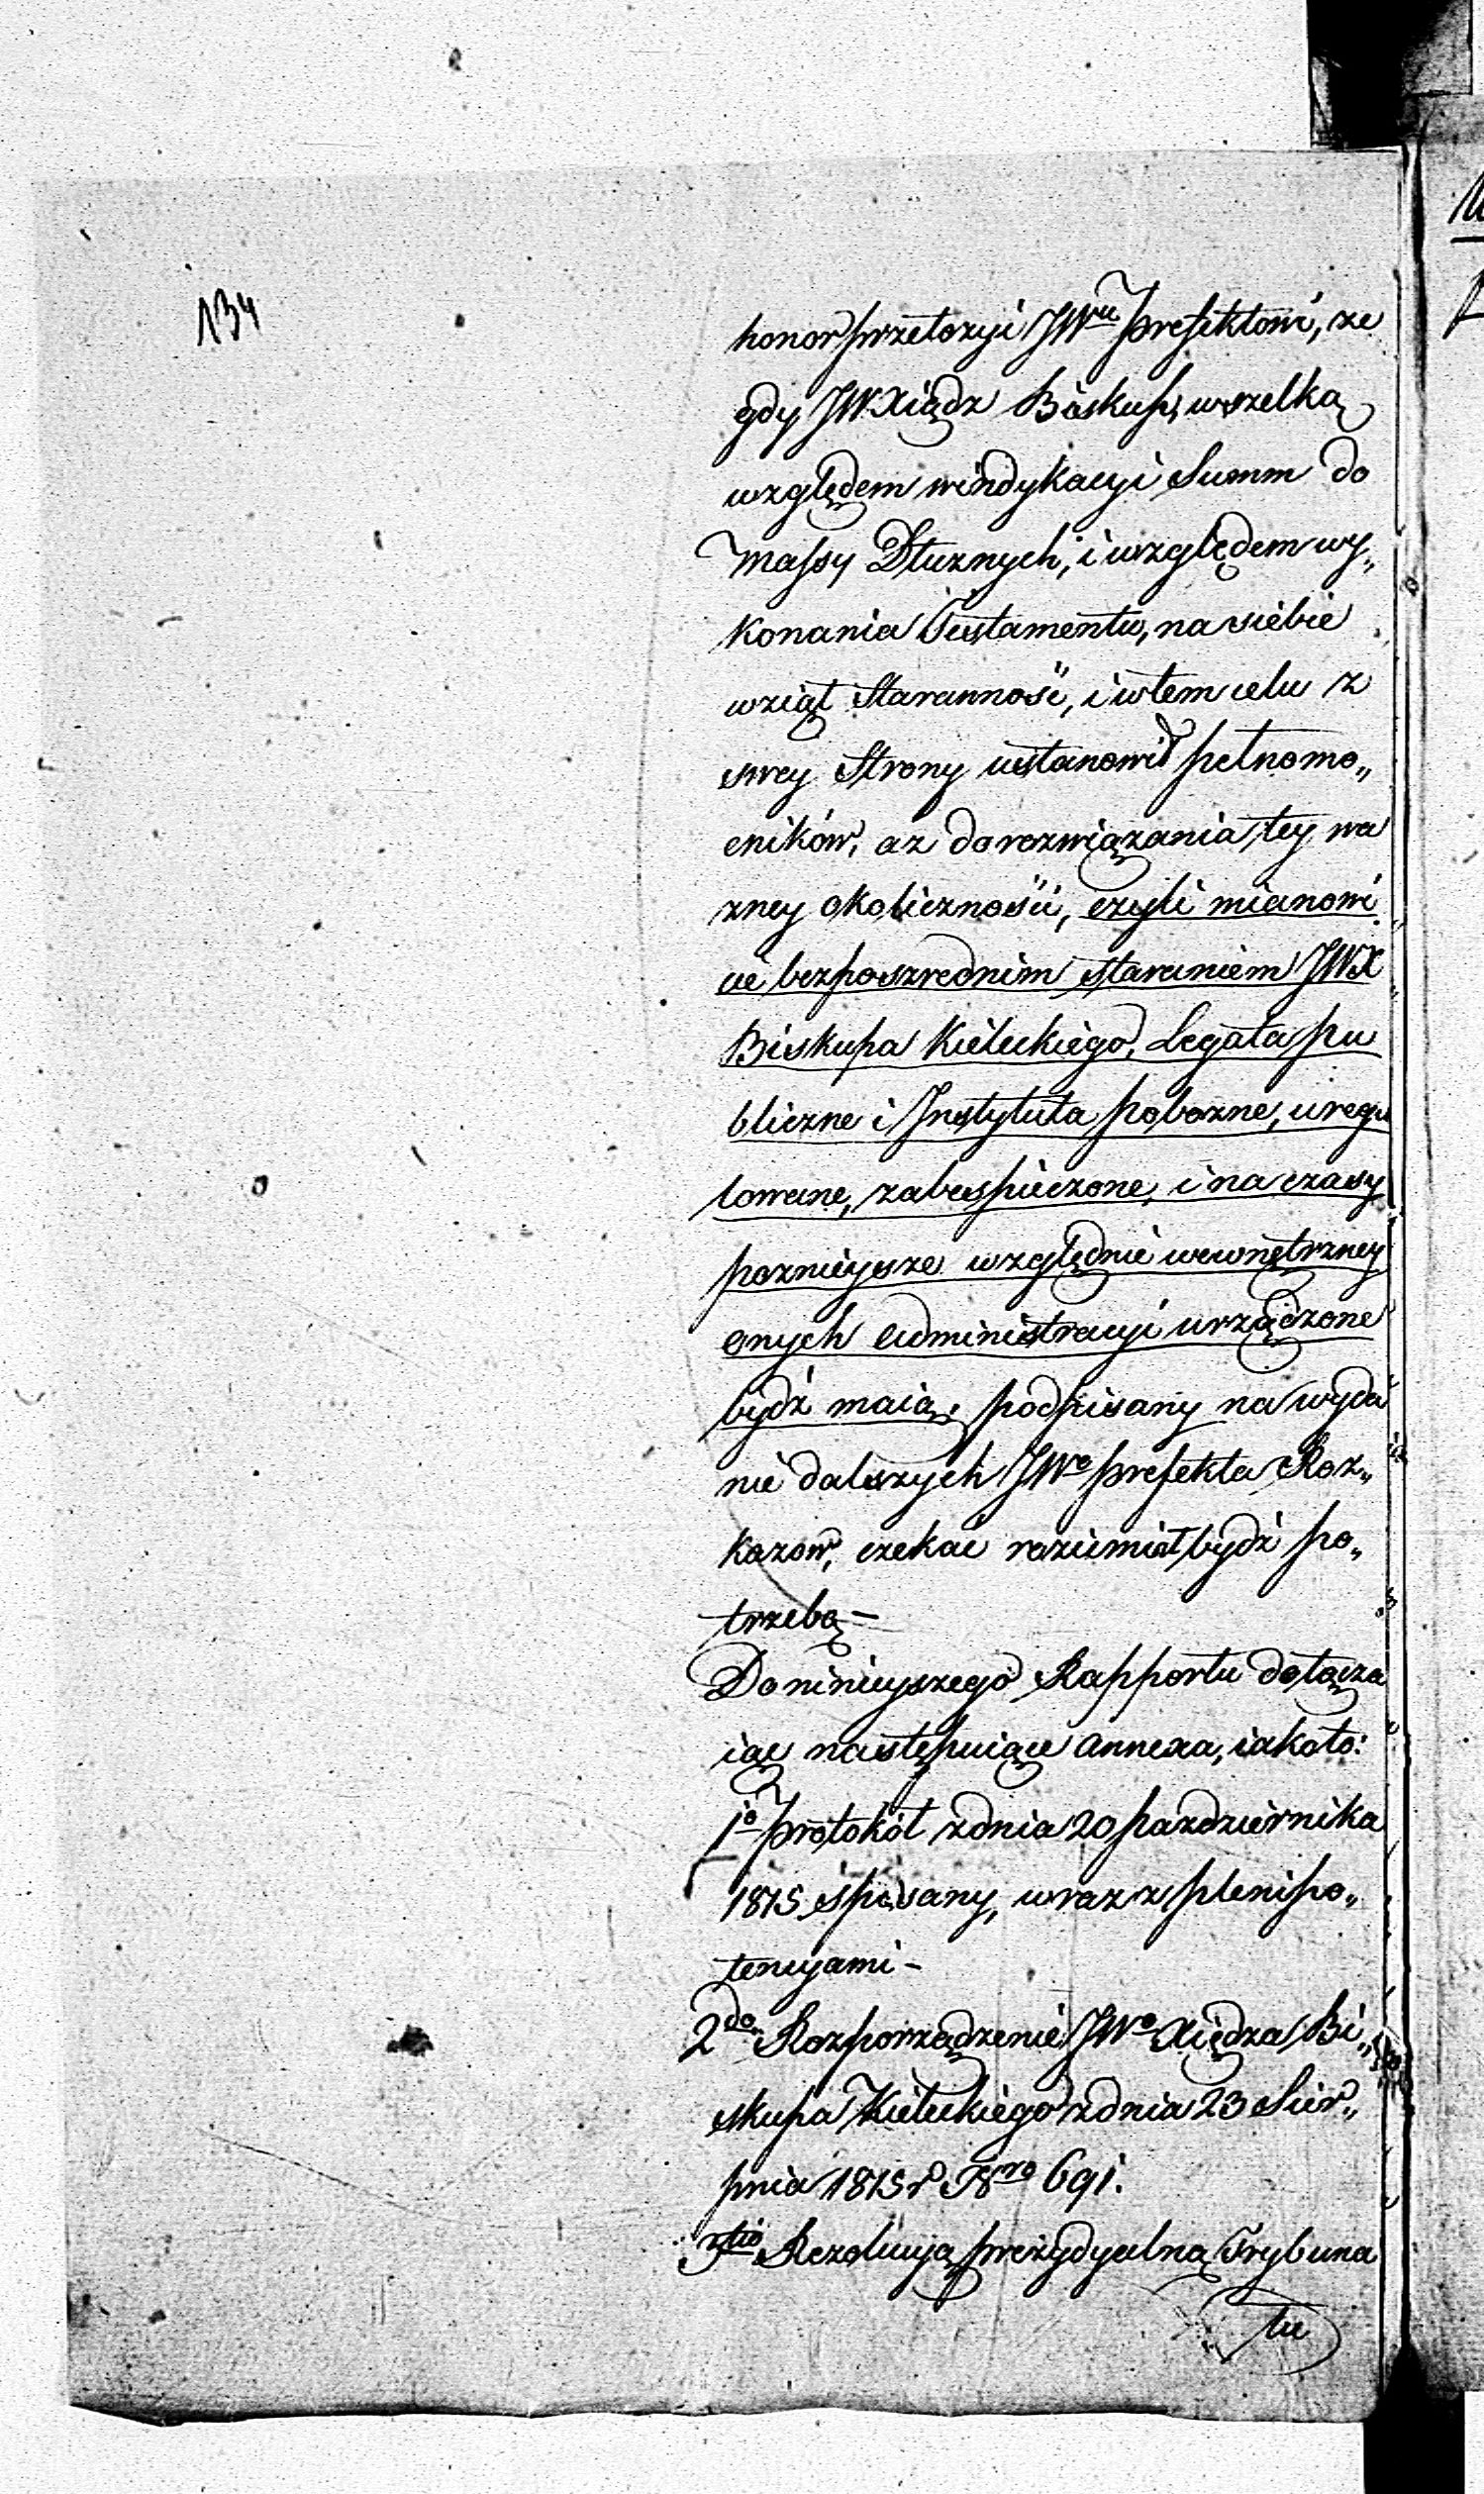 134
honor przełożyć JWu Prefektowi, że
gdy JWXiądz Biskup, wszelką
względem windykacyi Summ do
Massy Dłużnych, i względem wy„
konania Testamentu, na siebie
wziął Staranność, i w tem celu z
swey Strony ustanowił pełnomo„
cników, aż do rozwiązania tey wa
żney okoliczności, czyli mianowi
cie bezposzrednim staraniem JWX
Biskupa Kieleckiego, Legata pu
bliczne i Instytuta pobożne, uregu
lowane, zabespieczone, i na czasy
poznieysze względnie wewnętrzney
onych administracyi urządzone
bydź maią; podpisany na wyda
nie dalszych JWo Prefekta Roz„
kazow, czekać rozumiał bydź po„
trzebą –
Do ninieyszego Rapportu dołącza
iąc następuiące annexa, iako to:
1o Protokół z dnia 20 Pazdziernika
1815 spisany, wraz z plenipo„
tencyami –
2do Rozporządzenie JWo Xiędza Bi„
skupa Kieleckiego z dnia 23 Sier„
pnia 1815 r Nro 691.
3tio Rezolucyą prezydyalną Trybuna
łu